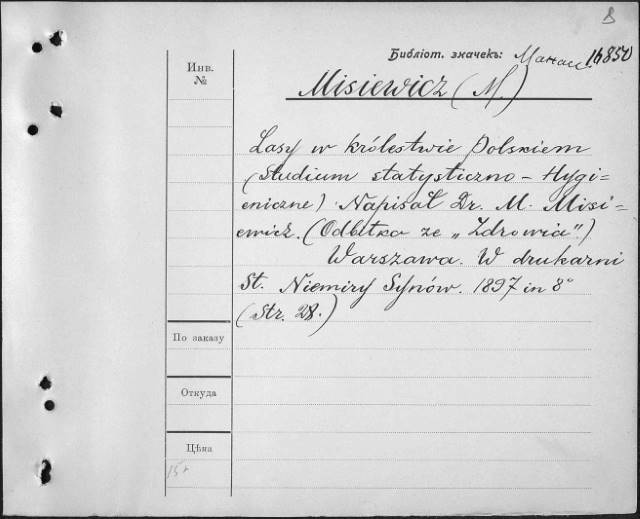 8
Библіот. значекъ: 16850
Инв.
№
Misiewicz (M.)
Lasy w królestwie Polskiem
(Studium statystyczno - Hygi-
eniczne) Napisał Dr. M. Misi-
ewicz. (Odbitka ze „Zdrowia".)
Warszawa. W drukarni
St. Niemiry Synów. 1897 in 8°
(Str. 28.)
По заказу
Откуда
Цѣна